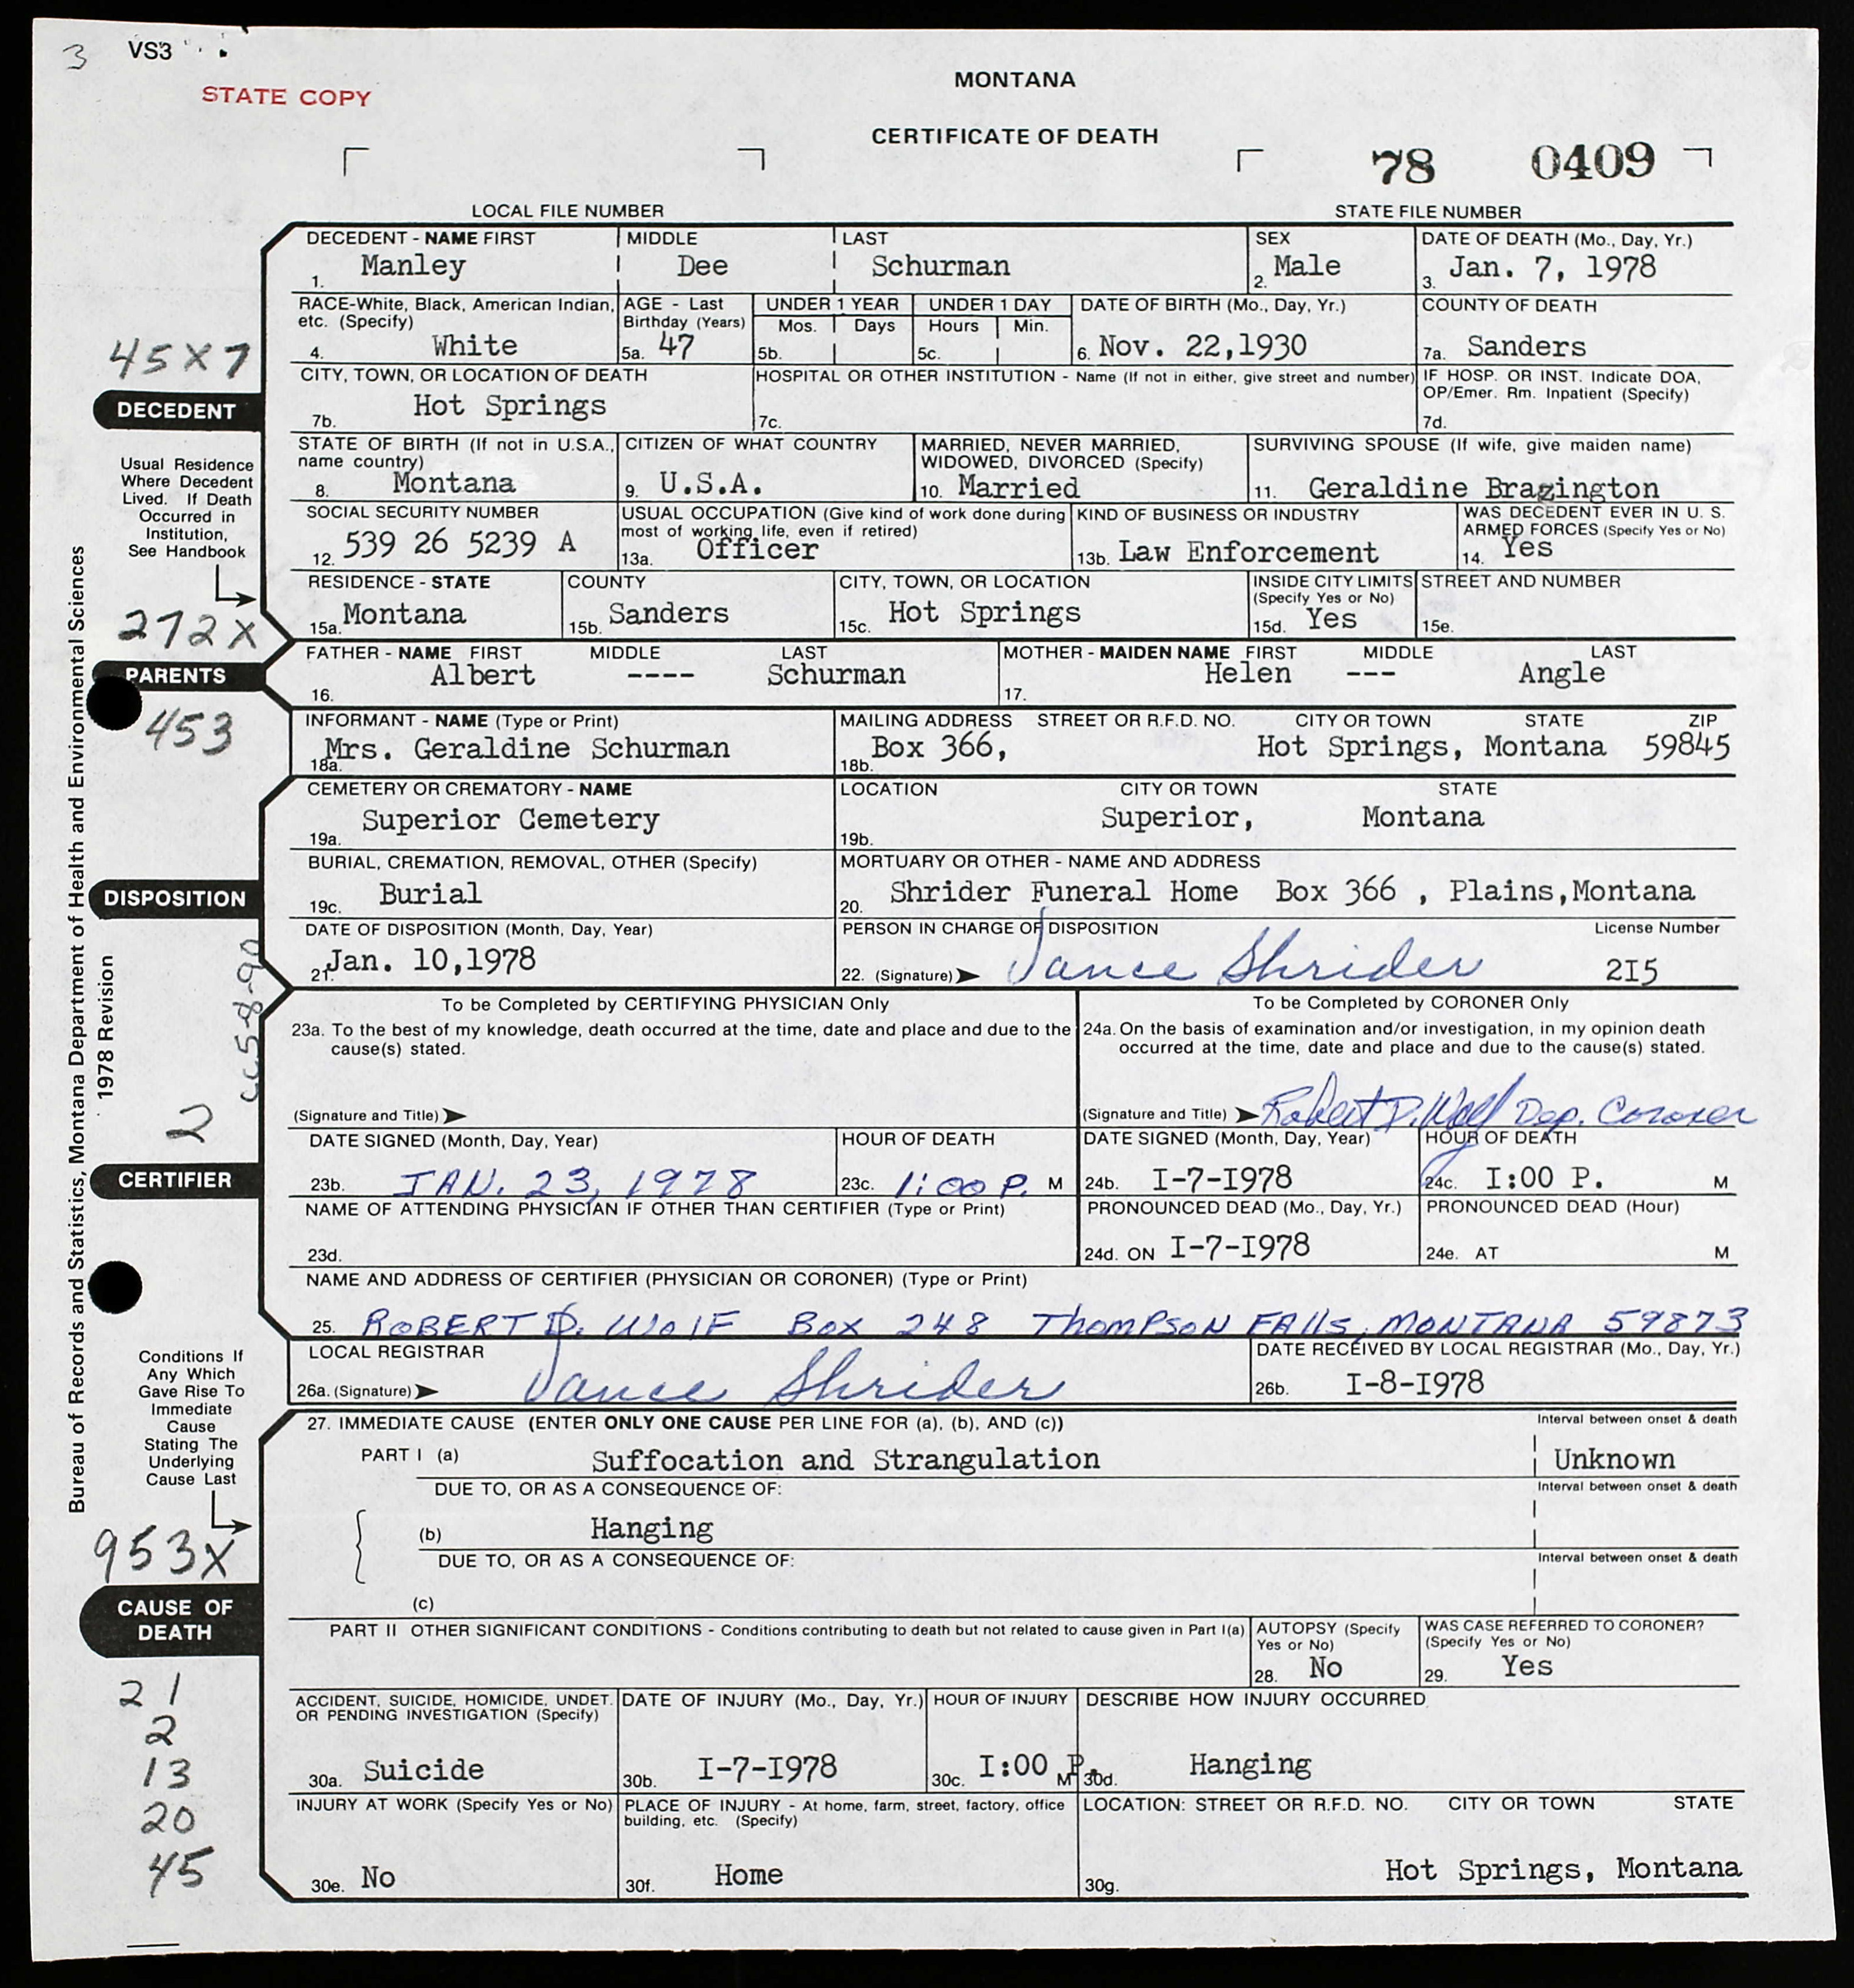 3 VS3
STATE COPY
MONTANA
CERTIFICATE OF DEATH
78 0409
LOCAL FILE NUMBER STATE FILE NUMBER
DECEDENT - NAME FIRST MIDDLE LAST SEX DATE OF DEATH (Mo., Day, Yr.)
1. Manley Dee Schurman 2. Male 3. Jan. 7, 1978
RACE-White, Black, American Indian, etc. (Specify) AGE - Last Birthday (Years) UNDER 1 YEAR UNDER 1 DAY DATE OF BIRTH (Mo., Day, Yr.) COUNTY OF DEATH
Mos. Days Hours Min.
4. White 5a. 47 5b. 5c. 6. Nov. 22,1930 7a. Sanders
45X7
DECEDENT
CITY, TOWN, OR LOCATION OF DEATH HOSPITAL OR OTHER INSTITUTION - Name (If not in either, give street and number) IF HOSP. OR INST. Indicate DOA, OP/Emer. Rm. Inpatient (Specify)
7b. Hot Springs 7c. 7d.
STATE OF BIRTH (If not in U.S.A., name country) CITIZEN OF WHAT COUNTRY MARRIED, NEVER MARRIED, WIDOWED, DIVORCED (Specify) SURVIVING SPOUSE (If wife, give maiden name)
8. Montana 9. U.S.A. 10. Married 11. Geraldine Brazington
Usual Residence
Where Decedent
Lived. If Death
Occurred in
Institution,
See Handbook
SOCIAL SECURITY NUMBER USUAL OCCUPATION (Give kind of work done during most of working life, even if retired) KIND OF BUSINESS OR INDUSTRY WAS DECEDENT EVER IN U. S. ARMED FORCES (Specify Yes or No)
12. 539 26 5239 A 13a. Officer 13b. Law Enforcement 14. Yes
RESIDENCE - STATE COUNTY CITY, TOWN, OR LOCATION INSIDE CITY LIMITS (Specify Yes or No) STREET AND NUMBER
15a. Montana 15b. Sanders 15c. Hot Springs 15d. Yes 15e.
272X
PARENTS
FATHER - NAME FIRST MIDDLE LAST MOTHER - MAIDEN NAME FIRST MIDDLE LAST
16. Albert ---- Schurman 17. Helen --- Angle
453
INFORMANT - NAME (Type or Print) MAILING ADDRESS STREET OR R.F.D. NO. CITY OR TOWN STATE ZIP
18a. Mrs. Geraldine Schurman 18b. Box 366, Hot Springs, Montana 59845
CEMETERY OR CREMATORY - NAME LOCATION CITY OR TOWN STATE
19a. Superior Cemetery 19b. Superior, Montana
BURIAL, CREMATION, REMOVAL, OTHER (Specify) MORTUARY OR OTHER - NAME AND ADDRESS
DISPOSITION
19c. Burial 20. Shrider Funeral Home Box 366 , Plains,Montana
DATE OF DISPOSITION (Month, Day, Year) PERSON IN CHARGE OF DISPOSITION License Number
21. Jan. 10,1978 22. (Signature) Vance Shrider 2I5
Bureau of Records and Statistics, Montana Department of Health and Environmental Sciences
1978 Revision
To be Completed by CERTIFYING PHYSICIAN Only To be Completed by CORONER Only
23a. To the best of my knowledge, death occurred at the time, date and place and due to the cause(s) stated. 24a. On the basis of examination and/or investigation, in my opinion death occurred at the time, date and place and due to the cause(s) stated.
(Signature and Title) (Signature and Title) Robert D. Wolf Dep. Coroner
2
DATE SIGNED (Month, Day, Year) HOUR OF DEATH DATE SIGNED (Month, Day, Year) HOUR OF DEATH
CERTIFIER
23b. JAN. 23, 1978 23c. 1:00 P. M 24b. I-7-I978 24c. I:00 P. M
NAME OF ATTENDING PHYSICIAN IF OTHER THAN CERTIFIER (Type or Print) PRONOUNCED DEAD (Mo., Day, Yr.) PRONOUNCED DEAD (Hour)
23d. 24d. ON I-7-I978 24e. AT M
NAME AND ADDRESS OF CERTIFIER (PHYSICIAN OR CORONER) (Type or Print)
25. ROBERT D. WOlF Box 248 ThomPSoN FAlls, MONTANA 59873
LOCAL REGISTRAR DATE RECEIVED BY LOCAL REGISTRAR (Mo., Day, Yr.)
26a. (Signature) Vance Shrider 26b. I-8-I978
Conditions If
Any Which
Gave Rise To
Immediate
Cause
Stating The
Underlying
Cause Last
27. IMMEDIATE CAUSE (ENTER ONLY ONE CAUSE PER LINE FOR (a), (b), AND (c)) Interval between onset & death
PART I (a) Suffocation and Strangulation Unknown
DUE TO, OR AS A CONSEQUENCE OF: Interval between onset & death
(b) Hanging
DUE TO, OR AS A CONSEQUENCE OF: Interval between onset & death
(c)
953X
CAUSE OF
DEATH
PART II OTHER SIGNIFICANT CONDITIONS - Conditions contributing to death but not related to cause given in Part I(a) AUTOPSY (Specify Yes or No) WAS CASE REFERRED TO CORONER? (Specify Yes or No)
28. No 29. Yes
ACCIDENT, SUICIDE, HOMICIDE, UNDET. OR PENDING INVESTIGATION (Specify) DATE OF INJURY (Mo., Day, Yr.) HOUR OF INJURY DESCRIBE HOW INJURY OCCURRED
30a. Suicide 30b. I-7-I978 30c. I:00 P. M 30d. Hanging
INJURY AT WORK (Specify Yes or No) PLACE OF INJURY - At home, farm, street, factory, office building, etc. (Specify) LOCATION: STREET OR R.F.D. NO. CITY OR TOWN STATE
30e. No 30f. Home 30g. Hot Springs, Montana
21
2
13
20
45